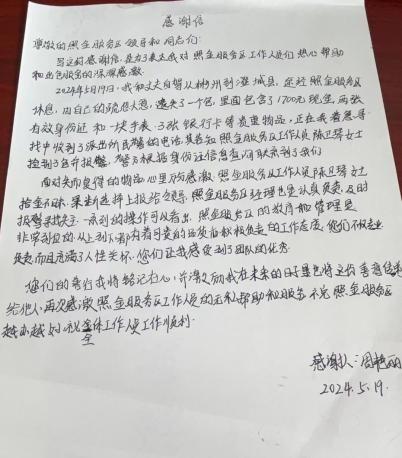 感谢信
尊敬的照金服务区领导和同志们:
写这封感谢信,是为了表达我对照金服务区工作人员们热心帮助
和出色服务的深深感激。
2024年5月19日,我和丈夫自驾从柳州到澄城县,途经照金服务区
休息,由自己的疏忽大意,遗失了一个包,里面包含了1700元现金,两张
有效身份证和一块手表、3张银行卡等贵重物品,正在我着急寻
找中收到了派出所民警的电话,其告知照金服务区工作人员陈卫琴女士
捡到了包并报警,警方根据身份证信息查询联系到了我们
面对失而复得的物品心里万分感激,照金服务区工作人员陈卫琴女士
拾金不昧,果断选择上报给领导,照金服务区经理也是认真负责,及时
报警寻找失主,一系列的操作可以看出,照金服务区的教育和管理是
非常到位的,从上到下都有着可贵的品质和积极负责的工作态度,他们不仅专业
负责而且充满了人性关怀,你们让我感受到了团队的优秀
您们的善行我将铭记在心,并激励我在未来的日子里也将这份善意传递
给他人,再次感谢照金服务区工作人员的无私帮助和服务,祝照金服务区
越办越好,祝全体工作人员工作顺利
感谢人:周艳丽
2024.5.19.